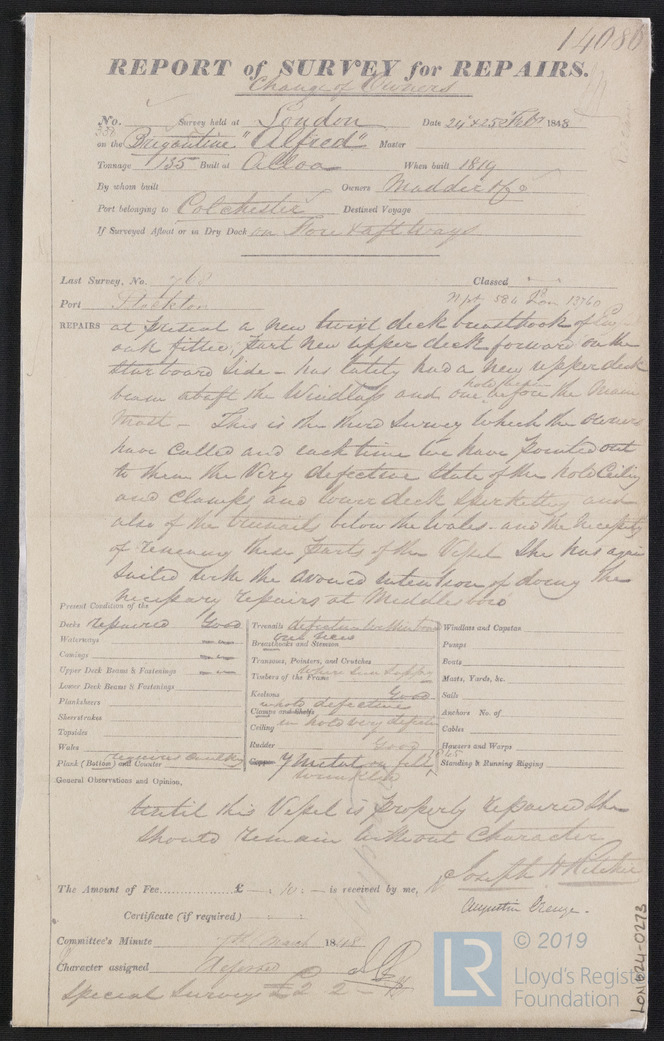 14080
REPORT of SURVEY for REPAIRS.
Change of Owners
No. 338 Survey held at London Date 24 & 25 Feby 1848
on the Brigantine "Alfred" Master
Tonnage 135 Built at Alloa When built 1819
By whom built Owners Maddie & Co
Port belonging to Colchester Destined Voyage
If Surveyed Afloat or in Dry Dock on Fore & aft Ways
Last Survey, No. 768 Classed
Port Stockton 586 Lon 13760
REPAIRS at present a new twixt deck breasthook of
oak fitted, part new upper deck forward on the
starboard side - has lately had a new upper deck
beam abaft the Windlass and one hold beam before the Main
Mast - This is the third Survey which the owners
have called and each time we have pointed out
to them the very defective state of the hold Ceiling
and Clamps and lower deck Spirketting and
also of the treenails below the Wales - and the necessity
of renewing these parts of the Vessel She has again
sailed with the avowed intention of doing the
necessary repairs at Middlesboro
Present Condition of the
Decks repaired Good
Waterways
Comings
Upper Deck Beams & Fastenings
Lower Deck Beams & Fastenings
Planksheers
Sheerstrakes
Topsides
Wales
Plank (Bottom) and Counter requires Caulking
Treenails defective
one new
Breasthooks and Stemson
Transoms, Pointers, and Crutches
Timbers of the Frame where seen
Keelsons Good
Clamps and Shelfs hold defective
Ceiling in hold very defective
Rudder Good
Copper Y Metal on felt 1845
wrinkled
Windlass and Capstan
Pumps
Boats
Masts, Yards, &c.
Sails
Anchors No. of
Cables
Hawsers and Warps
Standing & Running Rigging
General Observations and Opinion,
Until this Vessel is properly repaired She
should remain without Character
The Amount of Fee £ 10 is received by me, Joseph H Ritchie
Augustin Creuze.
Certificate (if required)
Committee's Minute 7th March 1848
Character assigned deferred
Special Survey £2 2
LON624-0273
LR © 2019
Lloyd's Register
Foundation